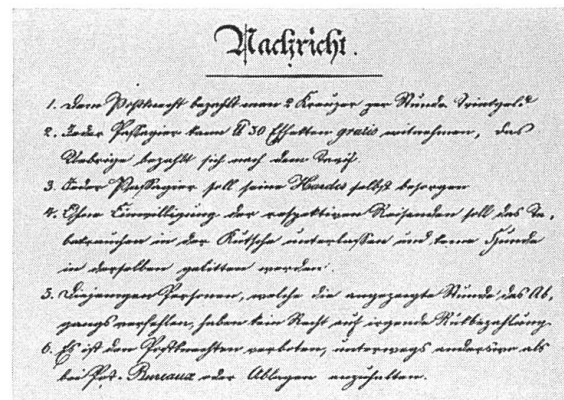 Nachricht.
1. Dem Postknecht bezahlt man 2 Kreuzer per Stunde Trinkgeld
2. Jeder Passagier kann ℔ 30 Effekten gratis mitnehmen, das
Uebrige bezahlt sich nach dem Tarif.
3. Jeder Passagier soll seine Hardes selbst besorgen
4. Ohne Einwilligung der respektiven Reisenden soll das Ta-
bakrauchen in der Kutsche unterlassen und keine Hunde
in derselben gelitten werden.
5. Diejenigen Personen, welche die angezeigte Stunde des Ab-
gangs verfehlen, haben kein Recht auf irgend Rükbezahlung.
6. Es ist den Postknechten verboten, unterwegs anderswo als
bei Post-Bureaux oder Ablagen anzuhalten.